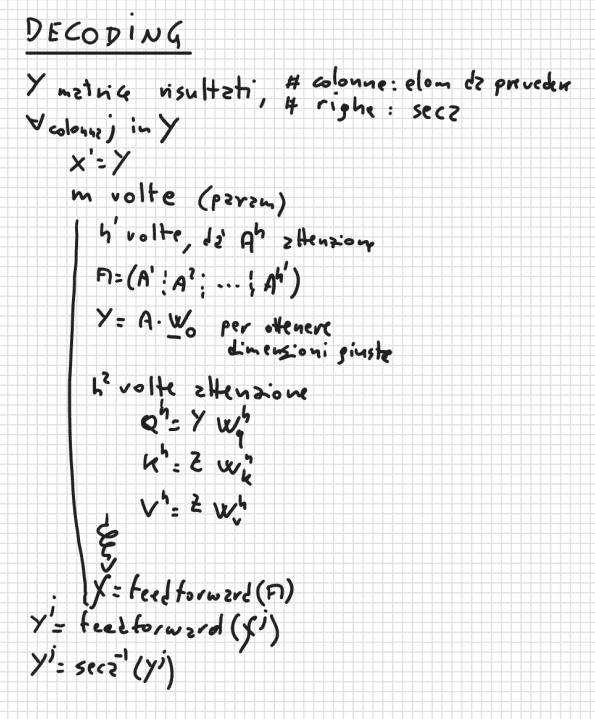 DECODING
Y matrice risultati, # colonne: elem da prevedere
# righe: seca
∀ colonna j in Y
x' = Y
m volte (param)
h' volte, da' A^h attenzione
A = (A^1 ¦ A^2 ¦ ... ¦ A^h')
Y = A · W_o per ottenere
dimensioni giuste
h² volte attenzione
Q^h = Y W_q^h
K^h = Z W_k^h
V^h = Z W_v^h
= feedforward(A)
Y^j = feedforward( ^j)
Y^j = seca^-1 (Y^j)